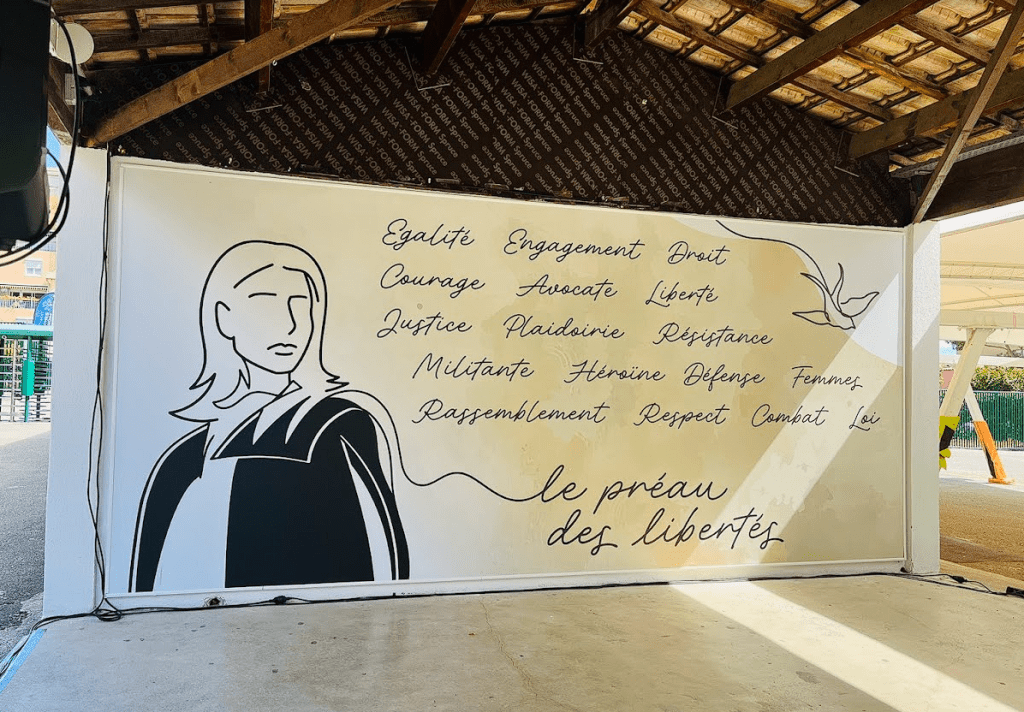 WISA-FORM Spruce
Egalité Engagement Droit
Courage Avocate Liberté
Justice Plaidoirie Résistance
Militante Héroïne Défense Femmes
Rassemblement Respect Combat Loi
le préau
des libertés